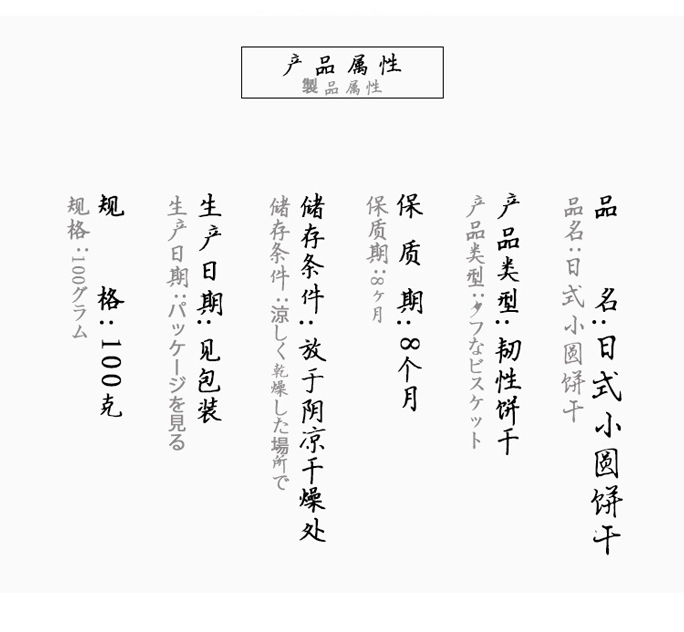 产品属性
製品属性
品名:日式小圆饼干
品名:日式小圆饼干
产品类型:韧性饼干
产品类型:タフなビスケット
保质期:8个月
保质期:8ヶ月
储存条件:放于阴凉干燥处
储存条件:涼しく乾燥した場所で
生产日期:见包装
生产日期:パッケージを見る
规格:100克
规格:100グラム